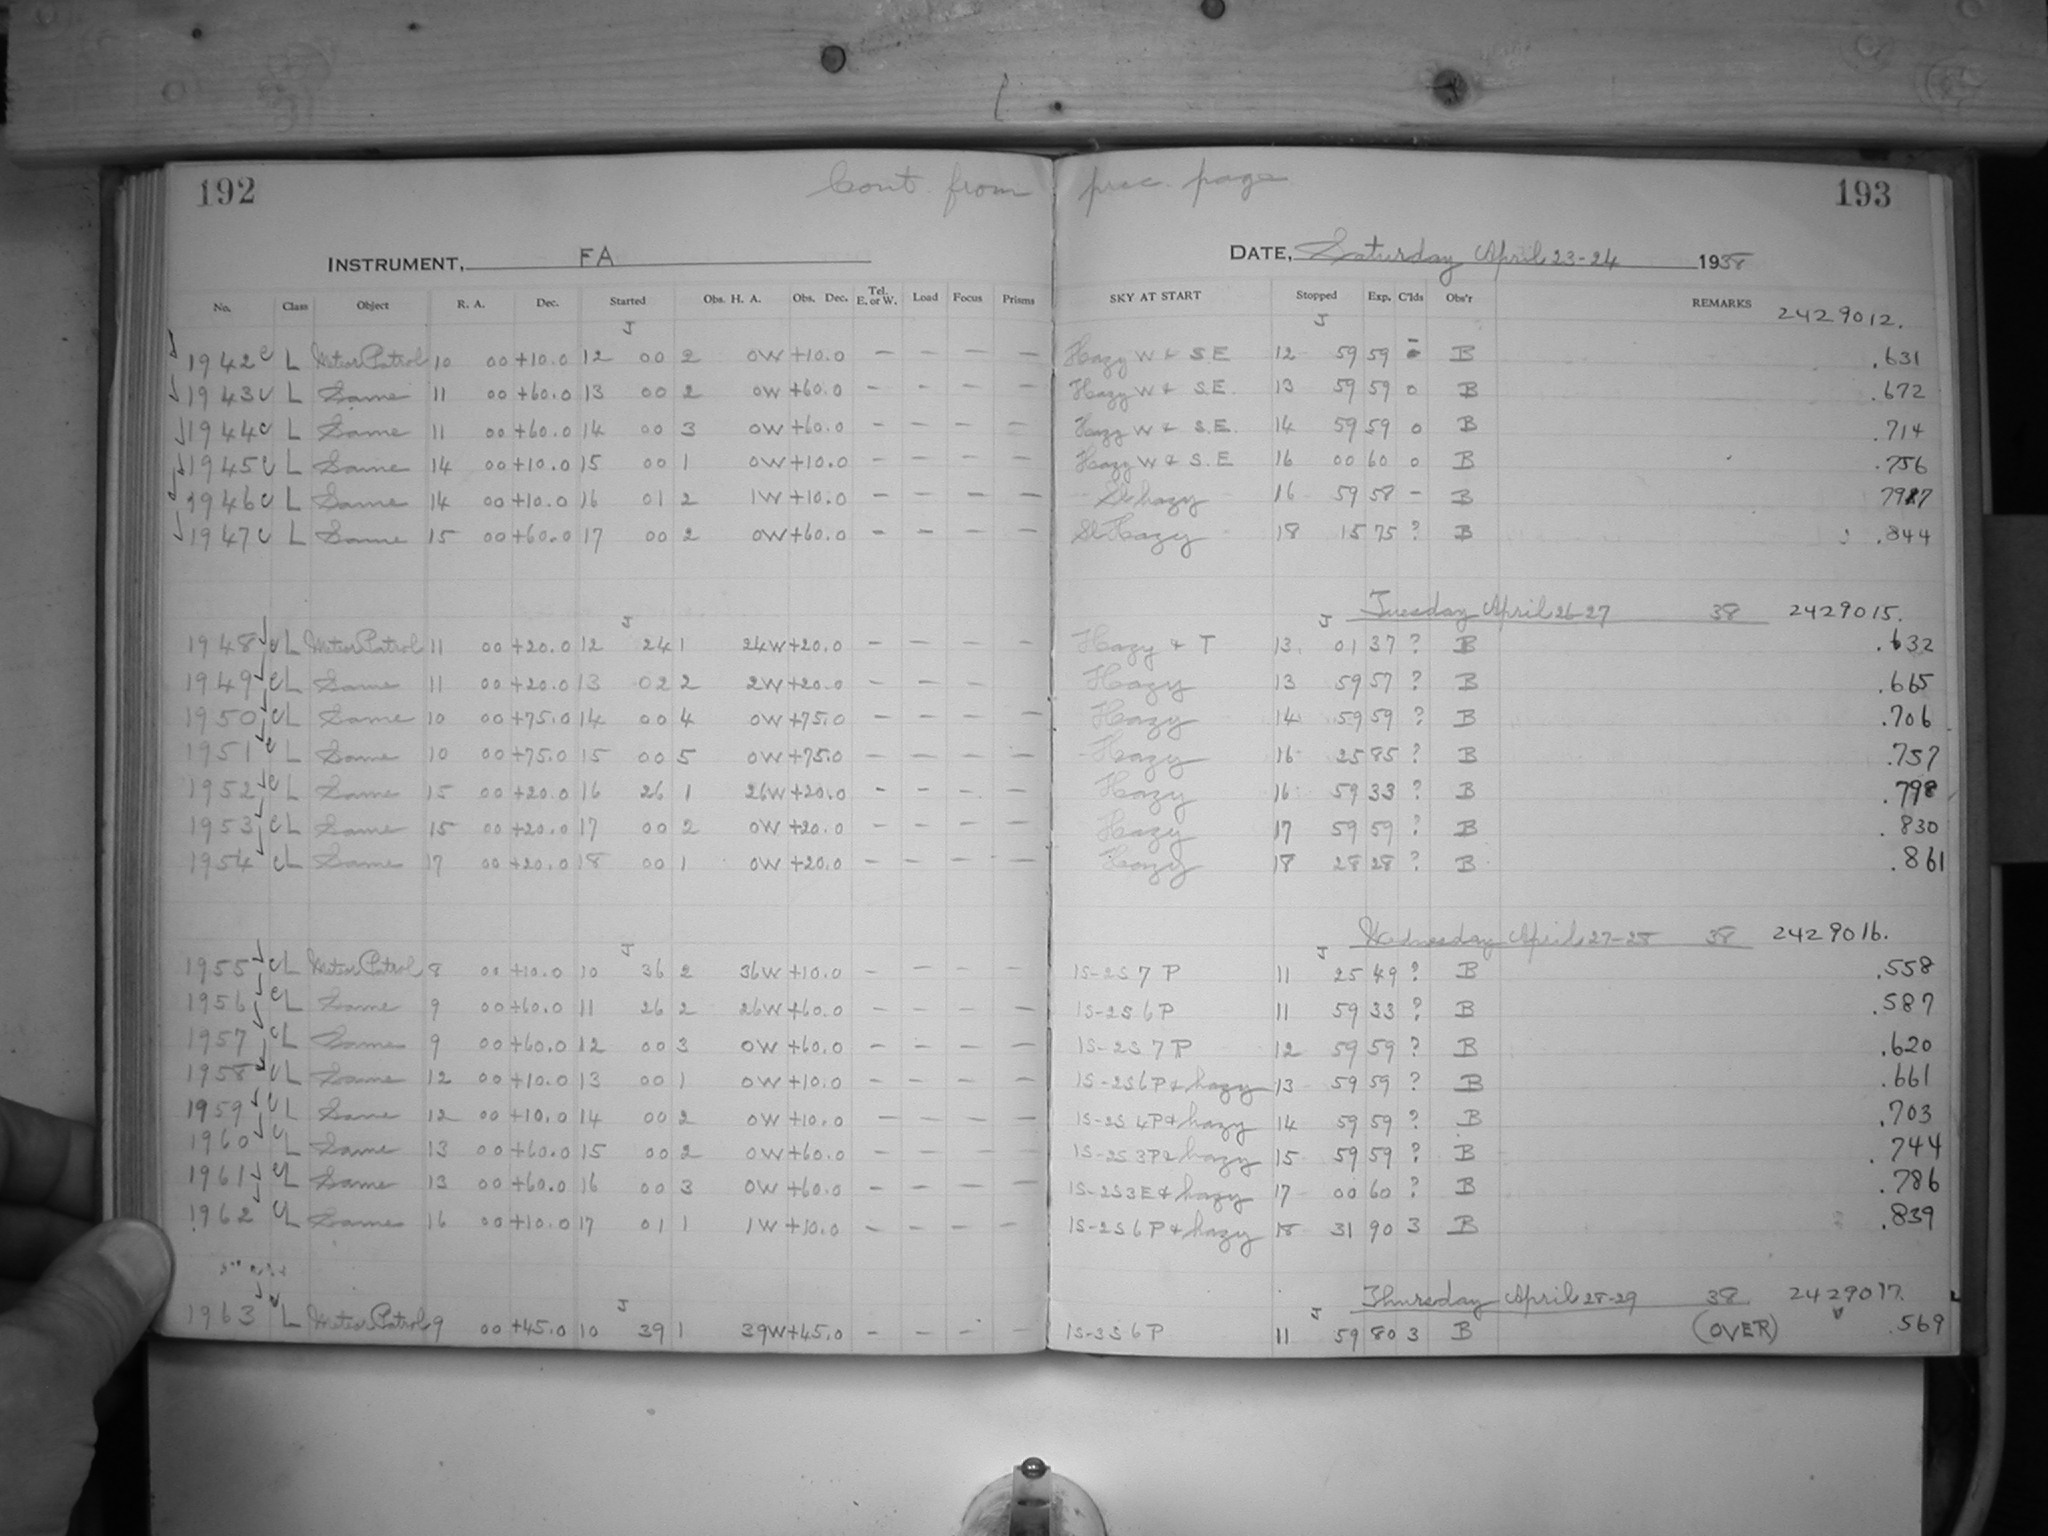 192 Cont. from prec. page 193
INSTRUMENT, FA DATE, Saturday April 23-24 1938
No. Class Object R. A. Dec. Started Obs. H. A. Obs. Dec. Tel. E. or W. Load Focus Prisms SKY AT START Stopped Exp. C'lds Obs'r REMARKS 2429012.
J J
1942 c L Meteor Patrol 10 00 +10.0 12 00 2 0W +10.0 — — — — Hazy W & S.E 12 59 59 B .631
1943 c L Same 11 00 +60.0 13 00 2 0W +60.0 — — — — Hazy W & S.E. 13 59 59 0 B .672
1944 c L Same 11 00 +60.0 14 00 3 0W +60.0 — — — — Hazy W & S.E. 14 59 59 0 B .714
1945 c L Same 14 00 +10.0 15 00 1 0W +10.0 — — — — Hazy W & S.E 16 00 60 0 B .756
1946 c L Same 14 00 +10.0 16 01 2 1W +10.0 — — — — Sl hazy 16 59 58 — B
1947 c L Same 15 00 +60.0 17 00 2 0W +60.0 — — — — Sl Hazy 18 15 75 ? B .844
Tuesday April 26-27 38 2429015.
J J
1948 c L Meteor Patrol 11 00 +20.0 12 24 1 24W +20.0 — — — — Hazy & T 13 01 37 ? B .632
1949 c L Same 11 00 +20.0 13 02 2 2W +20.0 — — — Hazy 13 59 57 ? B .665
1950 c L Same 10 00 +75.0 14 00 4 0W +75.0 — — — — Hazy 14 59 59 ? B .706
1951 c L Same 10 00 +75.0 15 00 5 0W +75.0 — — — — Hazy 16 25 85 ? B .757
1952 c L Same 15 00 +20.0 16 26 1 26W +20.0 — — — — Hazy 16 59 33 ? B .798
1953 c L Same 15 00 +20.0 17 00 2 0W +20.0 — — — — Hazy 17 59 59 ? B .830
1954 c L Same 17 00 +20.0 18 00 1 0W +20.0 — — — — Hazy 18 28 28 ? B .861
Wednesday April 27-28 38 2429016.
J J
1955 c L Meteor Patrol 8 00 +10.0 10 36 2 36W +10.0 — — — — 1S-2S 7 P 11 25 49 ? B .558
1956 c L Same 9 00 +60.0 11 26 2 26W +60.0 — — — — 1S-2S 6 P 11 59 33 ? B .587
1957 c L Same 9 00 +60.0 12 00 3 0W +60.0 — — — — 1S-2S 7 P 12 59 59 ? B .620
1958 c L Same 12 00 +10.0 13 00 1 0W +10.0 — — — — 1S-2S 6P & hazy 13 59 59 ? B .661
1959 c L Same 12 00 +10.0 14 00 2 0W +10.0 — — — — 1S-2S 4P & hazy 14 59 59 ? B .703
1960 c L Same 13 00 +60.0 15 00 2 0W +60.0 — — — — 1S-2S 3P & hazy 15 59 59 ? B .744
1961 c L Same 13 00 +60.0 16 00 3 0W +60.0 — — — — 1S-2S 3E & hazy 17 00 60 ? B .786
1962 c L Same 16 00 +10.0 17 01 1 1W +10.0 — — — — 1S-2S 6 P & hazy 18 31 90 3 B .839
Thursday April 28-29 38 2429017.
J J
1963 L Meteor Patrol 9 00 +45.0 10 39 1 39W +45.0 — — — — 1S-3S 6 P 11 59 80 3 B (OVER) .569